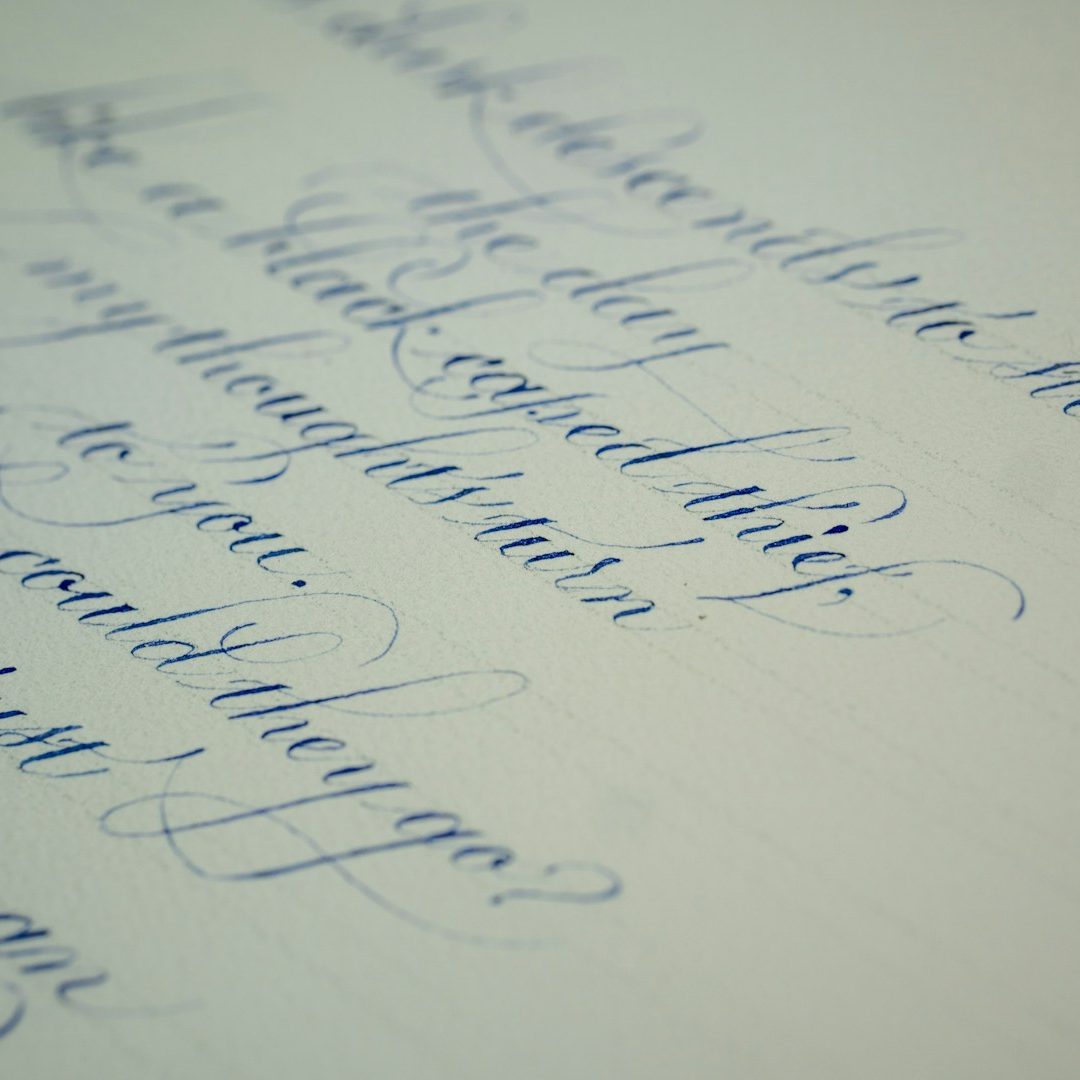 dark descends to
the day
like a black caped thief,
my thoughts turn
to you.
could they go?
ust
am